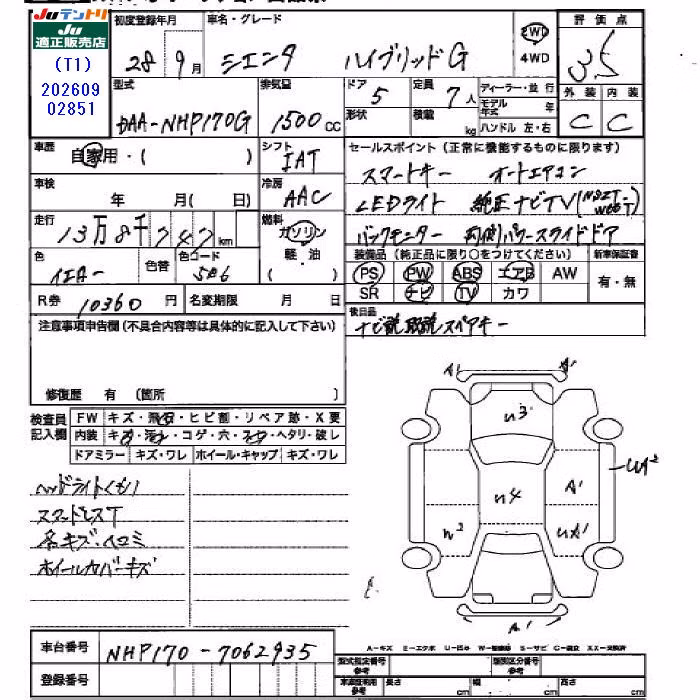 JUテントリ
JU
適正販売店
(T1)
202609
02851
初度登録年月
28年9月
車名・グレード
シエンタ ハイブリッドG
2WD
4WD
評価点
3.5
外装 内装
C C
型式
DAA-NHP170G
排気量
1500cc
ドア
5
形状
定員
7人
積載
kg
ディーラー・並行
モデル年式 年
ハンドル 左・右
車歴
自家用・( )
シフト
IAT
車検
年 月( 日)
冷房
AAC
走行
13万8千747km
燃料
ガソリン
軽・油
( )
色
イエロー
色替
色コード
5B6
R券 10360円
名変期限 月 日
セールスポイント(正常に機能するものに限ります)
スマートキー オートエアコン
LEDライト 純正ナビTV(NSZT-W66T)
バックモニター 両側パワースライドドア
装備品(純正品に限り○をつけてください)
PS PW ABS エアB AW
SR ナビ TV カワ
新車保証書
有・無
後日品
ナビ説取説スペアキー
注意事項申告欄(不具合内容等は具体的に記入して下さい)
修復歴 有 (箇所 )
検査員記入欄
FW キズ・飛石・ヒビ割・リペア跡・X要
内装 キズ・汚れ・コゲ・穴・スレ・ヘタリ・破レ
ドアミラー キズ・ワレ ホイール・キャップ キズ・ワレ
ヘッドライトくもり
各キズ・ヘコミ
ホイールカバーキズ
A1
U3
U4
A1
UA2
UA1
A1
A-キズ E-エクボ U-凹み W-補修跡 S-サビ C-腐食 XX-交換済
車台番号 NHP170-7062935
登録番号
型式指定番号 参考
類別区分番号 参考
車庫証明用 参考
長さ cm 幅 cm 高さ cm